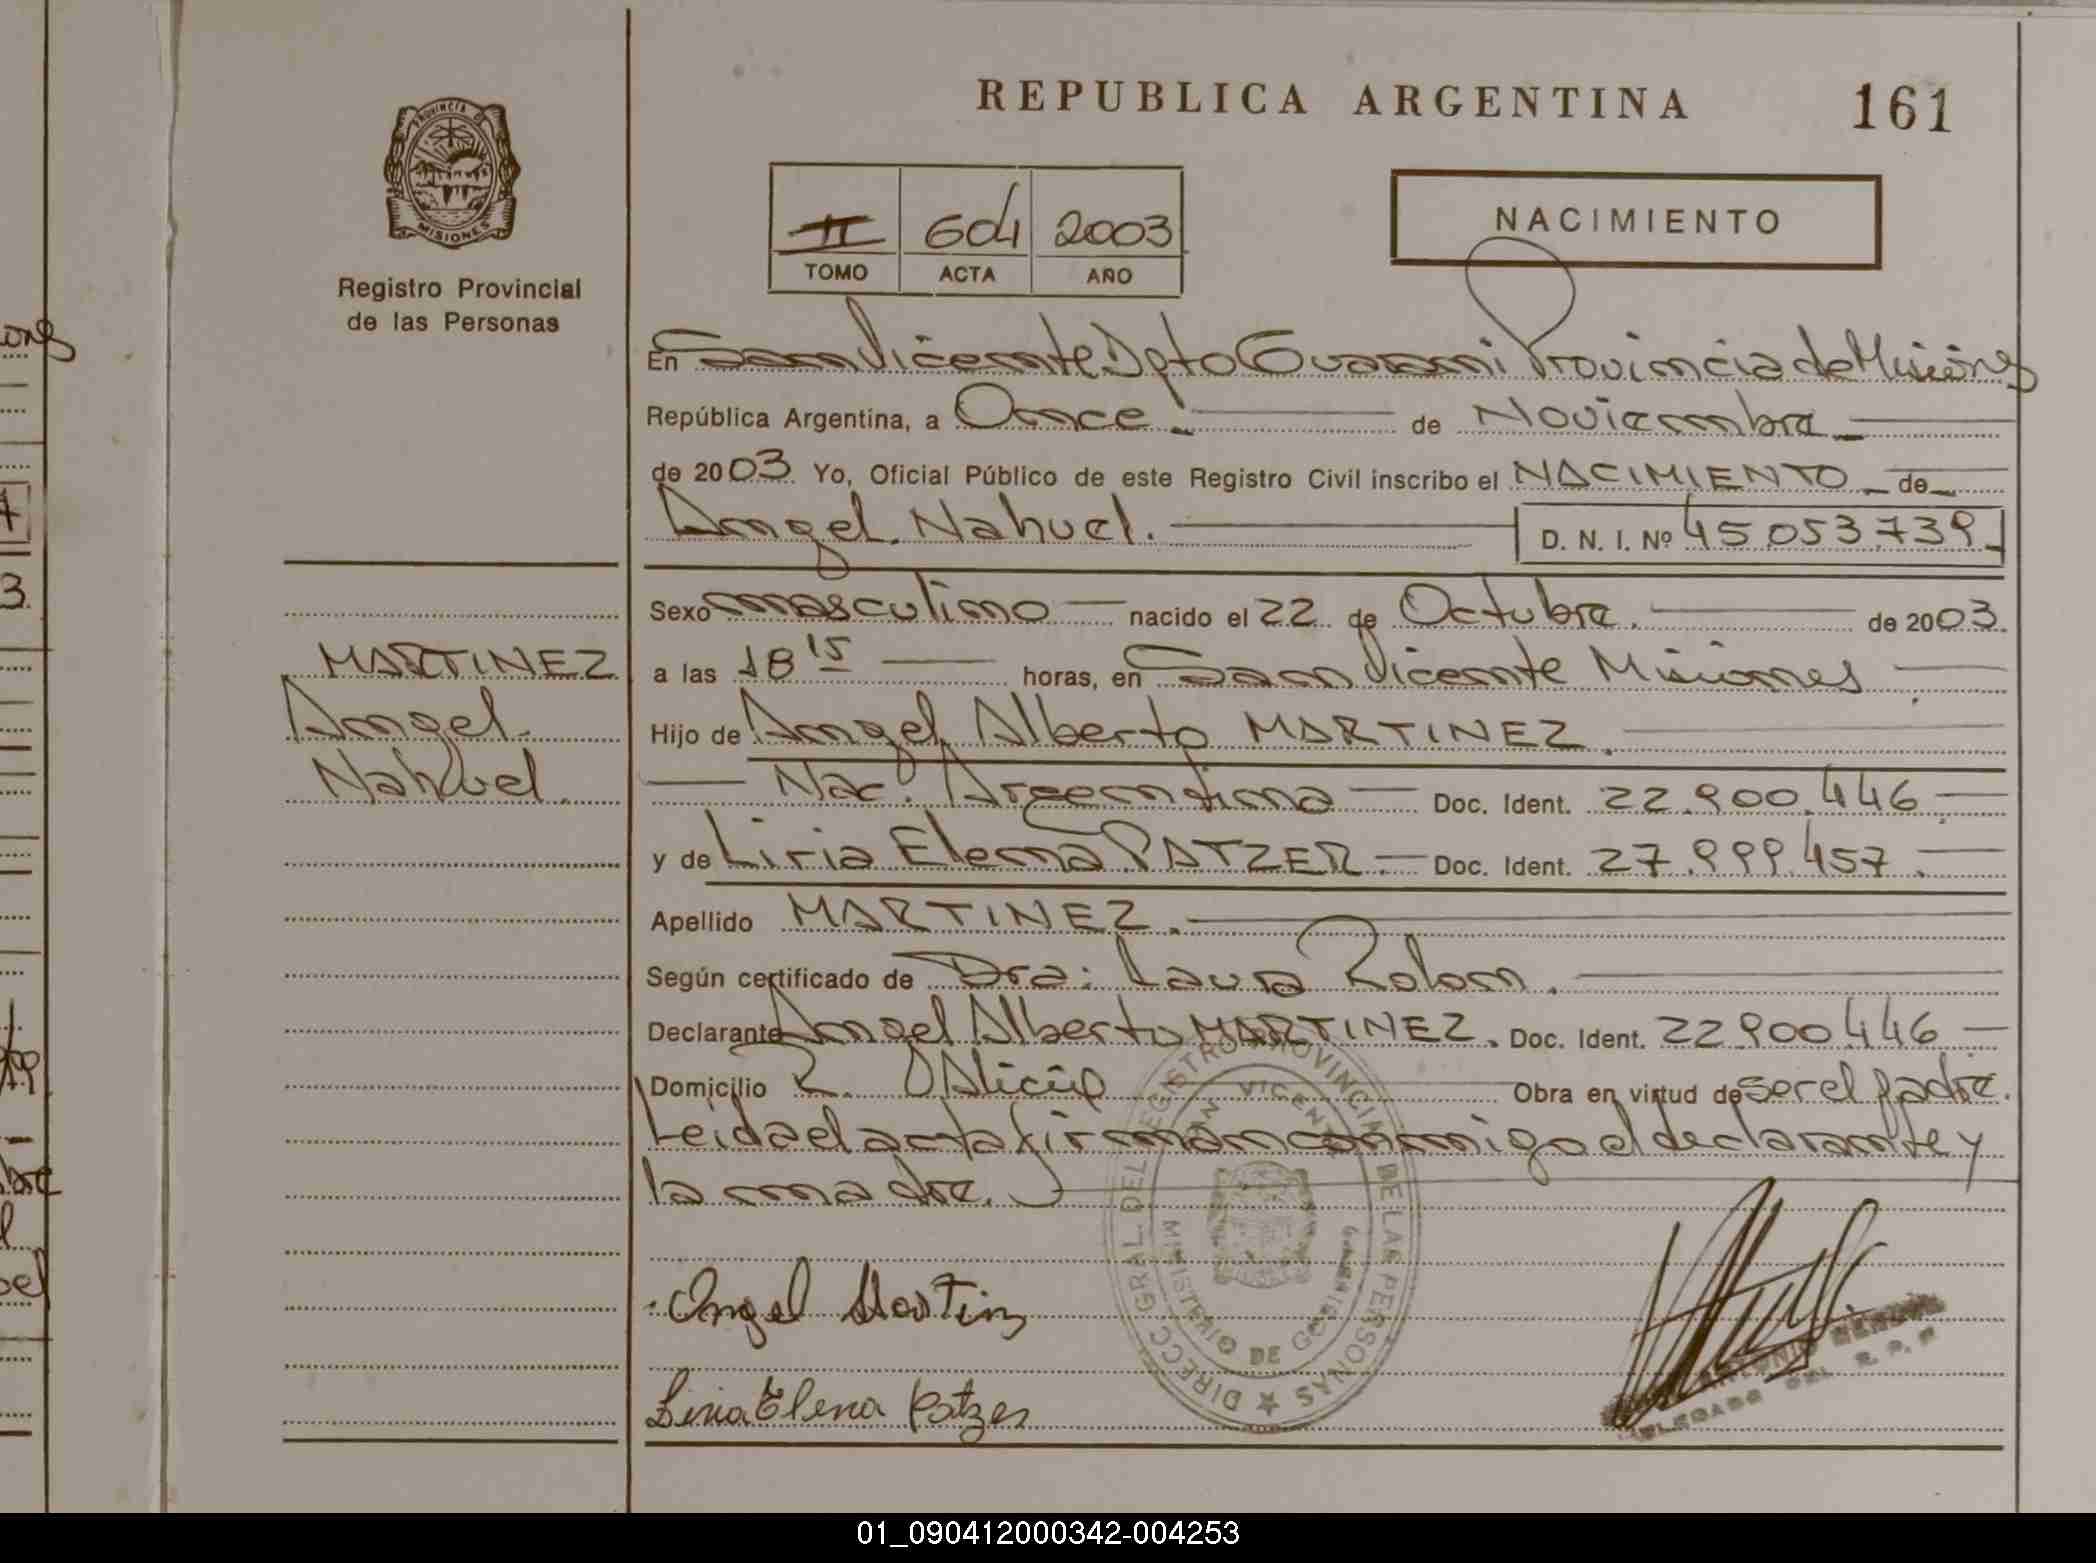 REPUBLICA ARGENTINA 161
PROVINCIA DE
MISIONES
Registro Provincial
de las Personas
II 604 2003
TOMO ACTA AÑO
NACIMIENTO
En San Vicente Dpto Guarani Provincia de Misiones
República Argentina, a Once.- de Noviembre
de 2003 Yo, Oficial Público de este Registro Civil inscribo el NACIMIENTO de
Angel Nahuel. D. N. I. Nº 45.053.739
Sexo masculino nacido el 22 de Octubre. de 2003.
MARTINEZ
Angel
Nahuel.
a las 18 15 horas, en San Vicente Misiones
Hijo de Angel Alberto MARTINEZ.
Nac. Argentina Doc. Ident. 22.900.446
y de Liria Elena PATZER. Doc. Ident. 27.999.457
Apellido MARTINEZ.
Según certificado de Dra: Laura Rolon.
Declarante Angel Alberto MARTINEZ. Doc. Ident. 22.900.446
Domicilio Obra en virtud de ser el padre.
Leida el acta firman conmigo el declarante y
la madre.
DIRECC GRAL DEL REGISTRO PROVINCIAL DE LAS PERSONAS
SAN VICENTE
MINISTERIO DE GOBIERNO
Angel Martinz
Liria Elena Patzer
ANTONIO
DELEGADO DEL R. P. P.
01_090412000342-004253